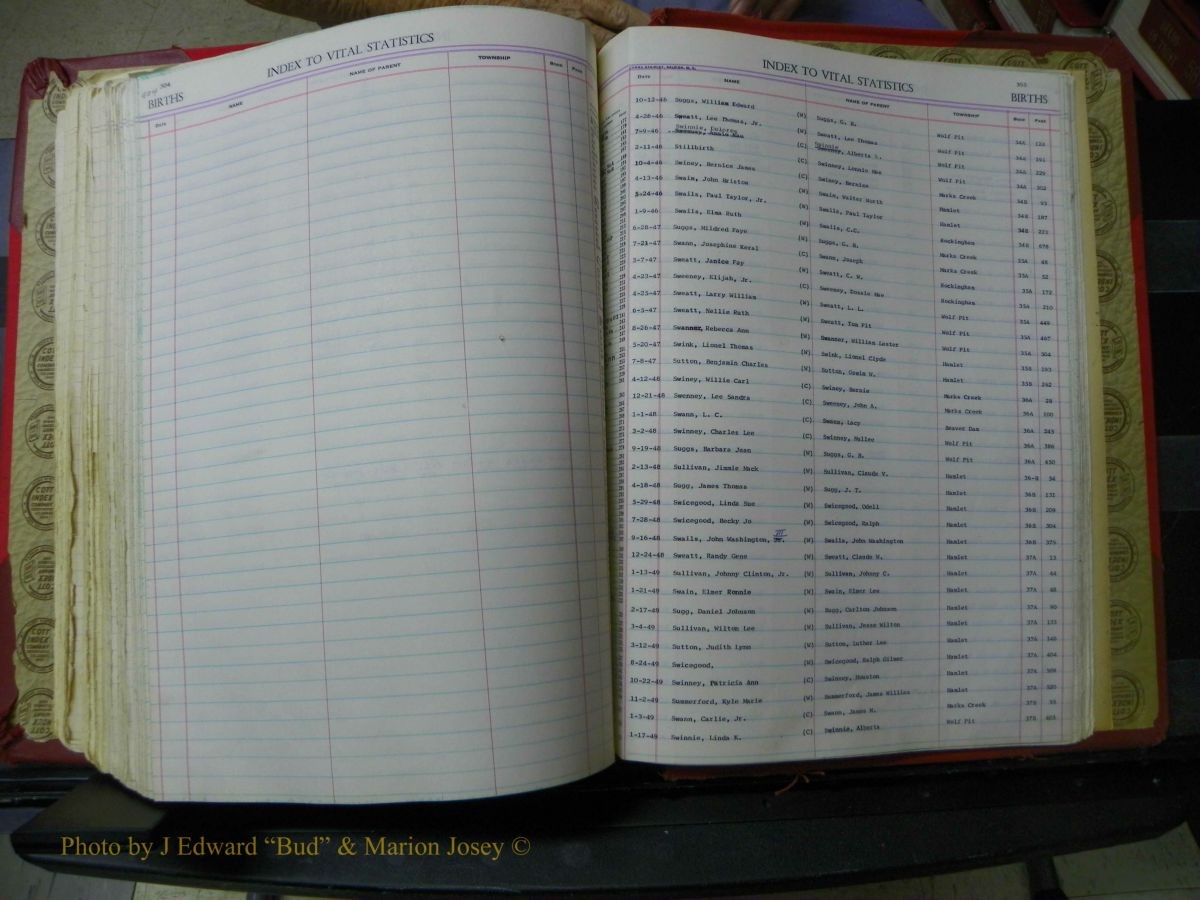 304
INDEX TO VITAL STATISTICS
BIRTHS
Date NAME NAME OF PARENT TOWNSHIP Book Page
INDEX TO VITAL STATISTICS
303
BIRTHS
Date NAME NAME OF PARENT TOWNSHIP Book Page
10-12-46 Suggs, William Edward (W) Suggs, G. R. Wolf Pit 34A 124
4-28-46 Sweatt, Lee Thomas, Jr. (W) Sweatt, Lee Thomas Wolf Pit 34A 191
7-9-46 Swinnie, Dolores (C) Swinnie, Alberta L. Wolf Pit 34A 229
2-11-46 Stillbirth (C) Swinney, Lennie Mae Wolf Pit 34A 302
10-4-46 Swiney, Bernice James (C) Swiney, Bernice Marks Creek 34B 93
4-13-46 Swaim, John Briston (W) Swaim, Walter Worth Hamlet 34B 187
5-24-46 Swails, Paul Taylor, Jr. (W) Swails, Paul Taylor Hamlet 34B 221
1-9-46 Swails, Elma Ruth (W) Swails, C.C. Rockingham 34B 676
6-28-47 Suggs, Mildred Faye (W) Suggs, G. R. Marks Creek 35A 48
7-21-47 Swann, Josephine Keral (C) Swann, Joseph Marks Creek 35A 52
3-7-47 Sweatt, Janice Fay (W) Sweatt, C. W. Rockingham 35A 172
4-23-47 Sweeney, Elijah, Jr. (C) Sweeney, Rossie Mae Rockingham 35A 210
4-25-47 Sweatt, Larry William (W) Sweatt, L. L. Wolf Pit 35A 449
6-5-47 Sweatt, Nellie Ruth (W) Sweatt, Tom Pit Wolf Pit 35A 467
8-26-47 Swanner, Rebecca Ann (W) Swanner, William Lester Wolf Pit 35A 504
5-20-47 Swink, Lionel Thomas (W) Swink, Lionel Clyde Hamlet 35B 193
7-8-47 Sutton, Benjamin Charles (W) Sutton, Orein W. Hamlet 35B 242
4-12-48 Swiney, Willie Carl (C) Swiney, Bernie Marks Creek 36A 28
12-21-48 Swenney, Lee Sandra (C) Sweeney, John A. Marks Creek 36A 100
1-1-48 Swann, L. C. (C) Swann, Lacy Beaver Dam 36A 243
3-2-48 Swinney, Charles Lee (C) Swinney, Nallee Wolf Pit 36A 386
9-19-48 Suggs, Barbara Jean (W) Suggs, G. R. Wolf Pit 36A 450
2-13-48 Sullivan, Jimmie Mack (W) Sullivan, Claude V. Hamlet 36-B 34
4-18-48 Sugg, James Thomas (W) Sugg, J. T. Hamlet 36B 131
5-29-48 Swicegood, Linda Sue (W) Swicegood, Odell Hamlet 36B 209
7-28-48 Swicegood, Becky Jo (W) Swicegood, Ralph Hamlet 36B 304
9-16-48 Swails, John Washington, III (W) Swails, John Washington Hamlet 36B 375
12-24-48 Sweatt, Randy Gene (W) Sweatt, Claude W. Hamlet 37A 13
1-13-49 Sullivan, Johnny Clinton, Jr. (W) Sullivan, Johnny C. Hamlet 37A 44
1-21-49 Swain, Elmer Ronnie (W) Swain, Elmer Lee Hamlet 37A 48
2-17-49 Sugg, Daniel Johnson (W) Sugg, Carlton Johnson Hamlet 37A 90
3-4-49 Sullivan, Wilton Lee (W) Sullivan, Jesse Wilton Hamlet 37A 133
3-12-49 Sutton, Judith Lynn (W) Sutton, Luther Lee Hamlet 37A 146
8-24-49 Swicegood, (W) Swicegood, Ralph Gilmer Hamlet 37A 404
10-22-49 Swinney, Patricia Ann (C) Swinney, Houston Hamlet 37A 508
11-2-49 Summerford, Kyle Marie (W) Summerford, James Willies Hamlet 37A 520
1-3-49 Swann, Carlie, Jr. (C) Swann, James H. Marks Creek 37B 35
1-17-49 Swinnie, Linda K. (C) Swinnie, Alberta Wolf Pit 37B 405
Photo by J Edward “Bud” & Marion Josey ©